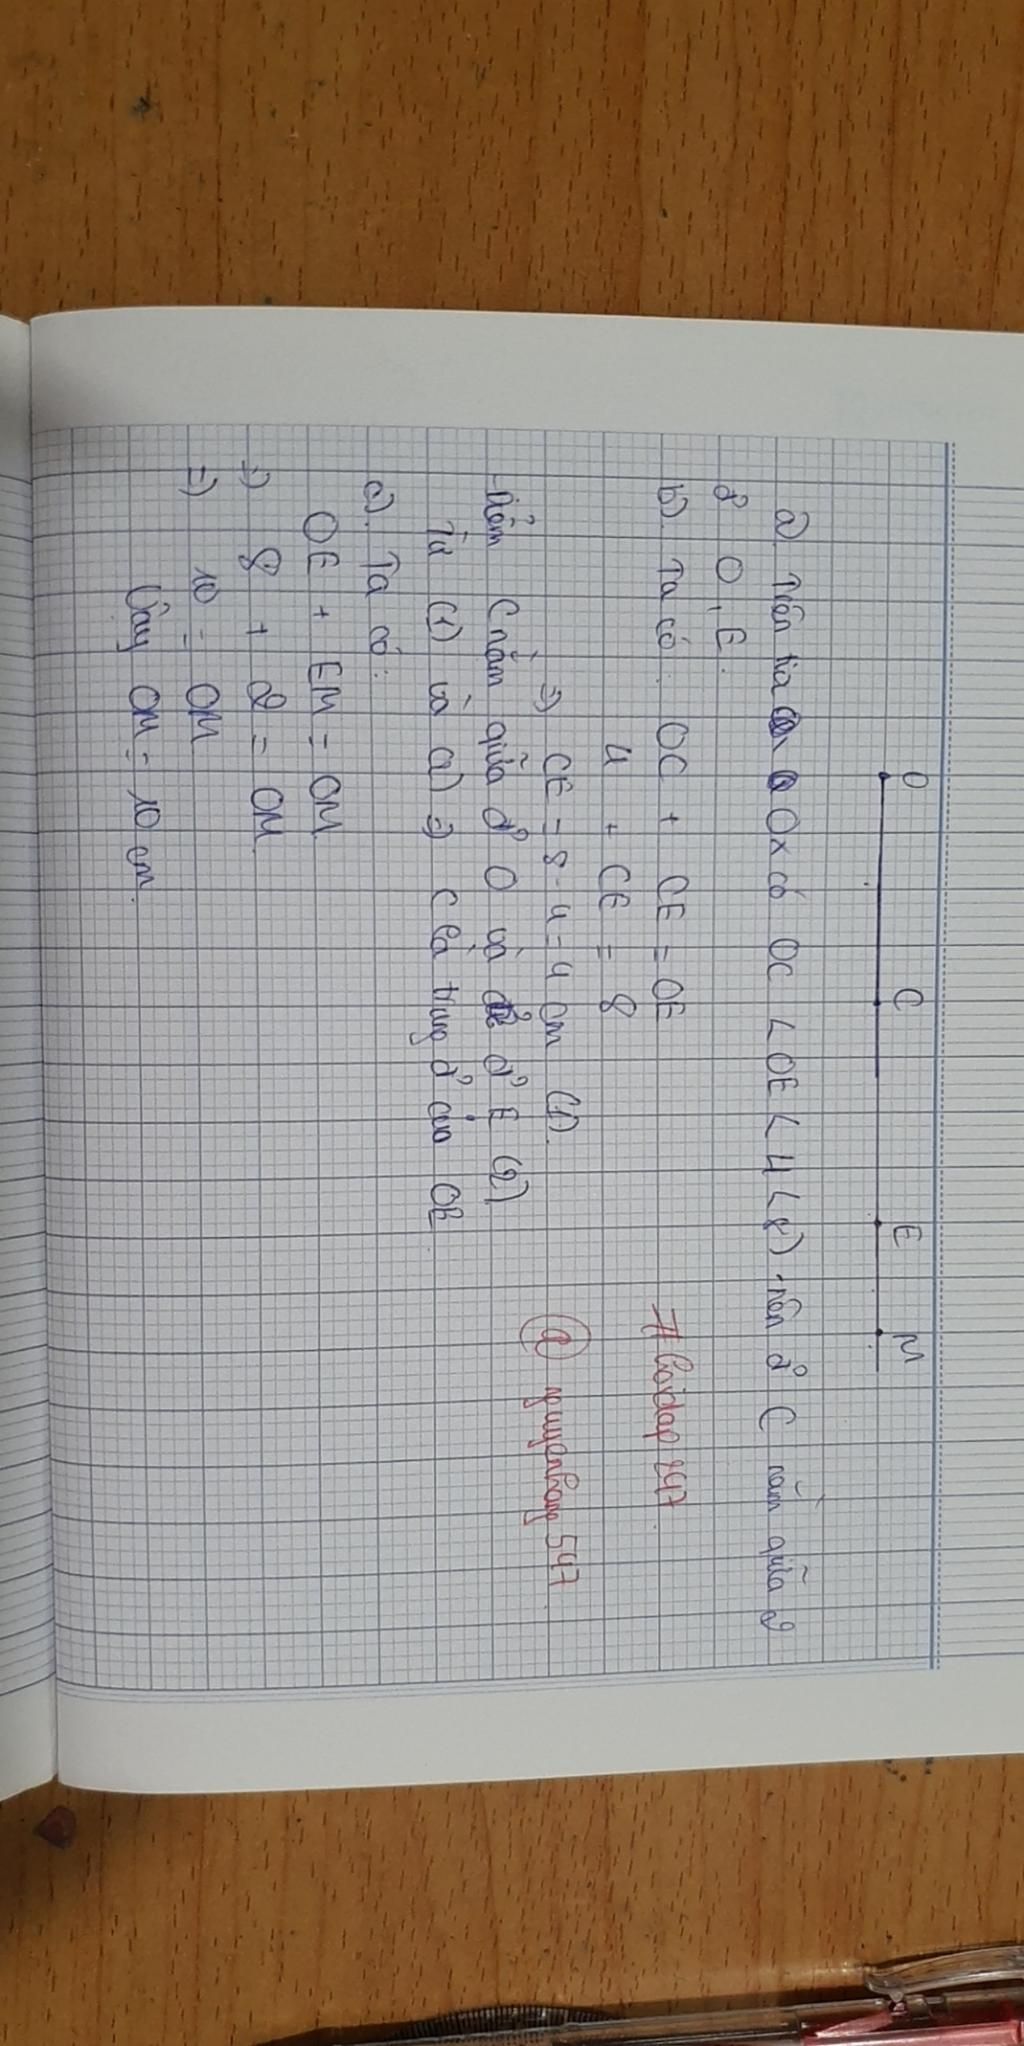 O C E M
a) Trên tia Ox có OC < OE < 4 < 8) nên đ² C nằm giữa 2
đ² O, E.
b) Ta có: OC + CE = OE
4 + CE = 8
=) CE = 8 - 4 = 4 cm (1).
Điểm C nằm giữa đ² O và đ² E (2)
Từ (1) và (2) =) C là trung đ² của OE
c). Ta có:
OE + EM = OM
=) 8 + 2 = OM
=) 10 = OM
Vậy OM = 10 cm.
# hoidap 247
@ nguyenhong 547